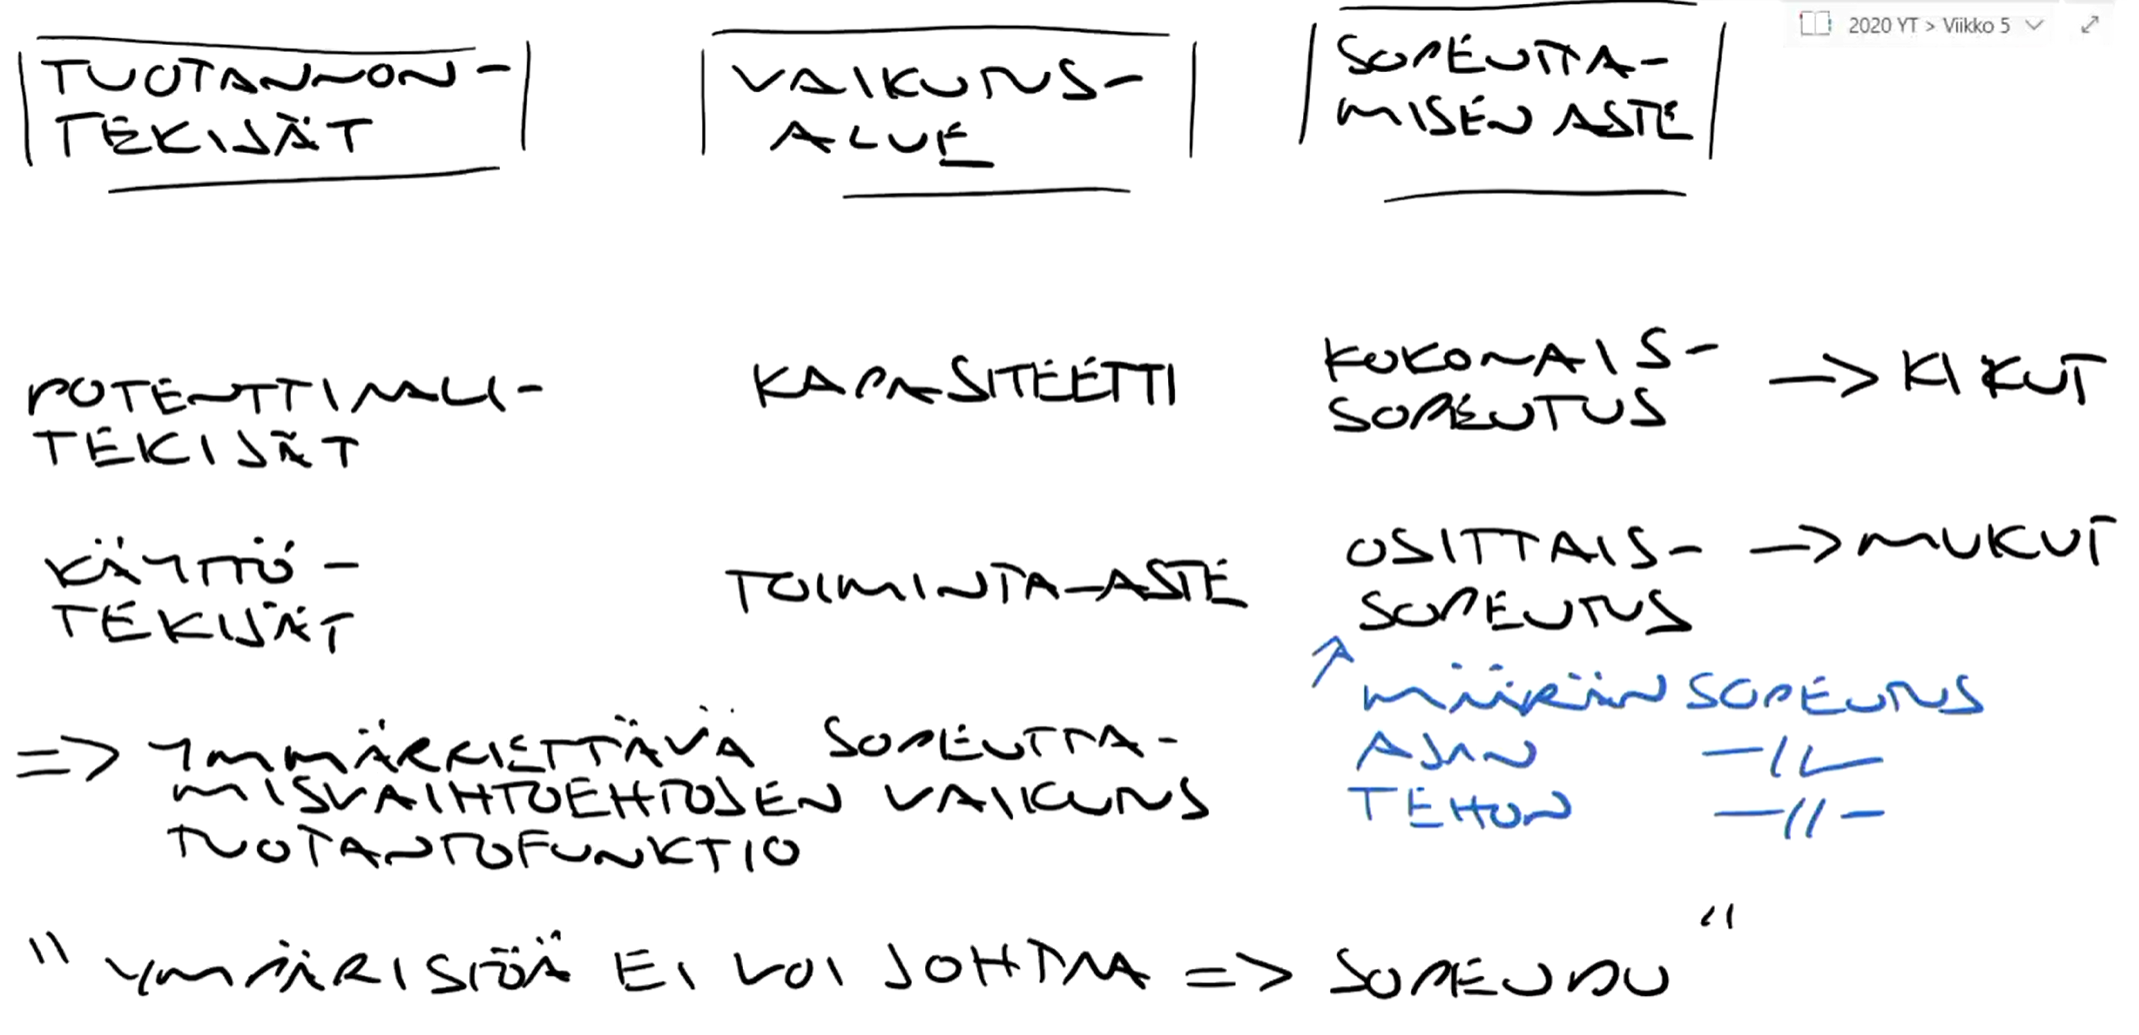 2020 YT > Viikko 5
TUOTANNON-
TEKIJÄT
VAIKUTUS-
ALUE
SOPEUTTA-
MISEN ASTE
POTENTIAALI-
TEKIJÄT
KAPASITEETTI
KOKONAIS-
SOPEUTUS
-> KIKUT
KÄYTTÖ-
TEKIJÄT
TOIMINTA-ASTE
OSITTAIS-
SOPEUTUS
-> MUKUT
MÄÄRÄN SOPEUTUS
AJAN -//-
TEHON -//-
=> YMMÄRRETTÄVÄ SOPEUTTA-
MISVAIHTOEHTOJEN VAIKUTUS
TUOTANTOFUNKTIO
"YMPÄRISTÖÄ EI VOI JOHTAA => SOPEUDU"